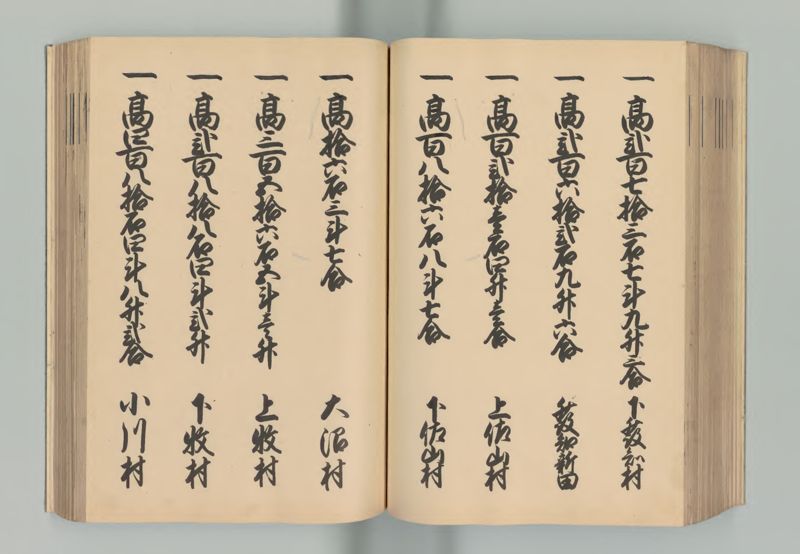 一高弐百七拾三石七斗九升三合 下發知村
一高弐百六拾弐石九升六合 發知新田
一高百弐拾壱石四升壱合 上佐山村
一高百八拾六石八斗七合 下佐山村
一高拾六石三斗七合 大沼村
一高三百五拾六石五斗三升 上牧村
一高弐百八拾八石四斗弐升 下牧村
一高四百八拾石四斗八升弐合 小川村